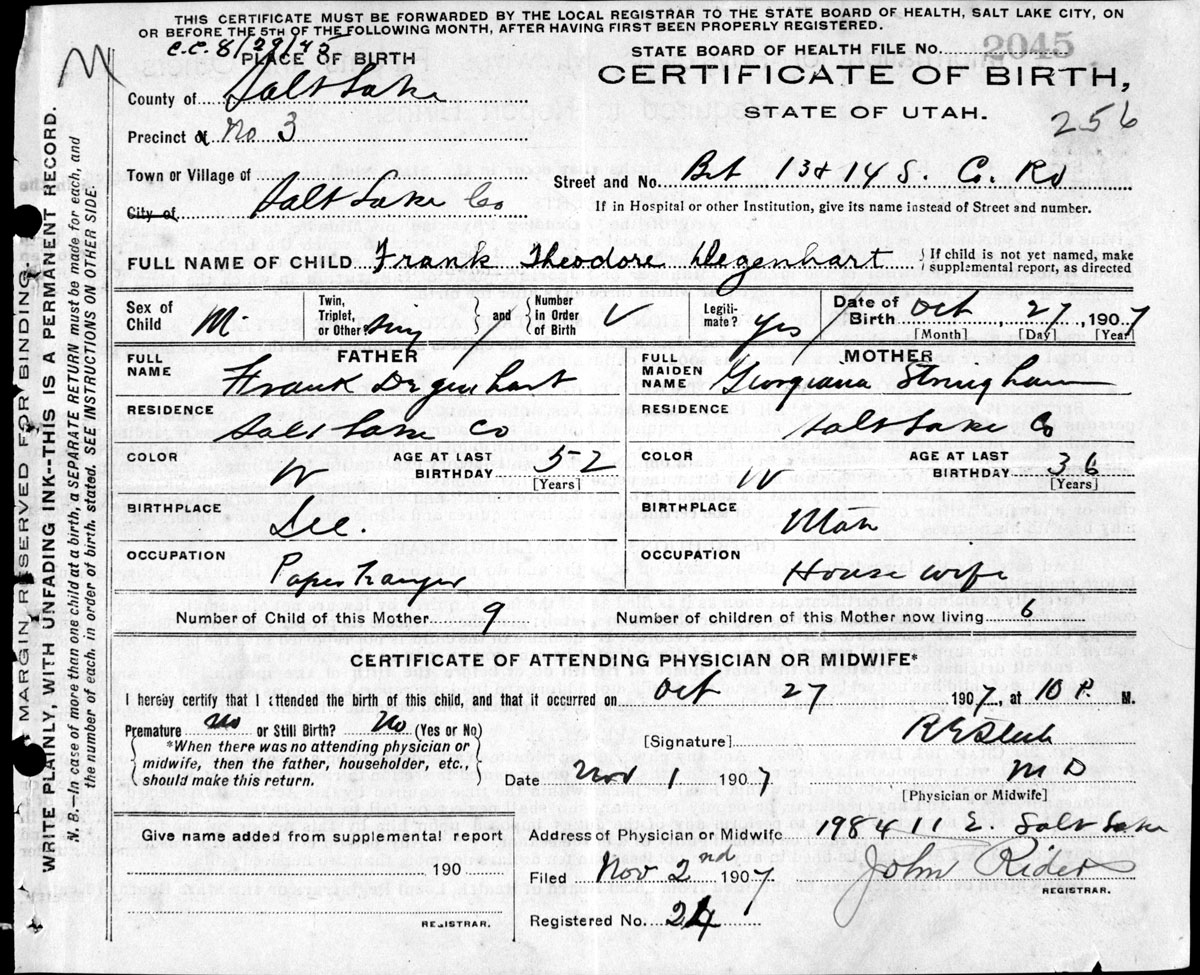 THIS CERTIFICATE MUST BE FORWARDED BY THE LOCAL REGISTRAR TO THE STATE BOARD OF HEALTH, SALT LAKE CITY, ON
OR BEFORE THE 5TH OF THE FOLLOWING MONTH, AFTER HAVING FIRST BEEN PROPERLY REGISTERED.
C.C. 8/29/43
PLACE OF BIRTH
STATE BOARD OF HEALTH FILE No. 2045
CERTIFICATE OF BIRTH,
STATE OF UTAH.
256
County of Salt Lake
Precinct of No 3
Town or Village of
City of Salt Lake Co
Street and No. Bet 13 & 14 S. C. Rd
If in Hospital or other Institution, give its name instead of Street and number.
FULL NAME OF CHILD Frank Theodore Degenhart
If child is not yet named, make supplemental report, as directed
Sex of Child M.
Twin, Triplet, or Other?
and Number in Order of Birth
Legitimate? Yes
Date of Birth Oct 27, 1907
[Month] [Day] [Year]
FATHER
FULL NAME Frank Degenhart
RESIDENCE Salt Lake Co
COLOR W
AGE AT LAST BIRTHDAY 52
[Years]
BIRTHPLACE
OCCUPATION Paper Hanger
MOTHER
FULL MAIDEN NAME Georgiana Stringham
RESIDENCE Salt Lake Co
COLOR W
AGE AT LAST BIRTHDAY 36
[Years]
BIRTHPLACE
OCCUPATION House wife
Number of Child of this Mother 9
Number of children of this Mother now living 6
CERTIFICATE OF ATTENDING PHYSICIAN OR MIDWIFE*
I hereby certify that I attended the birth of this child, and that it occurred on Oct 27 1907, at 10 P. M.
Premature No or Still Birth? No (Yes or No)
*When there was no attending physician or
midwife, then the father, householder, etc.,
should make this return.
[Signature]
M D
Date Nov 1 1907
[Physician or Midwife]
Give name added from supplemental report
190
REGISTRAR.
Address of Physician or Midwife 1984 11 E. Salt Lake
Filed Nov 2nd 1907.
John Rider
REGISTRAR.
Registered No. 24
MARGIN RESERVED FOR BINDING.
WRITE PLAINLY, WITH UNFADING INK--THIS IS A PERMANENT RECORD.
N. B.--In case of more than one child at a birth, a SEPARATE RETURN must be made for each, and
the number of each, in order of birth, stated. SEE INSTRUCTIONS ON OTHER SIDE.